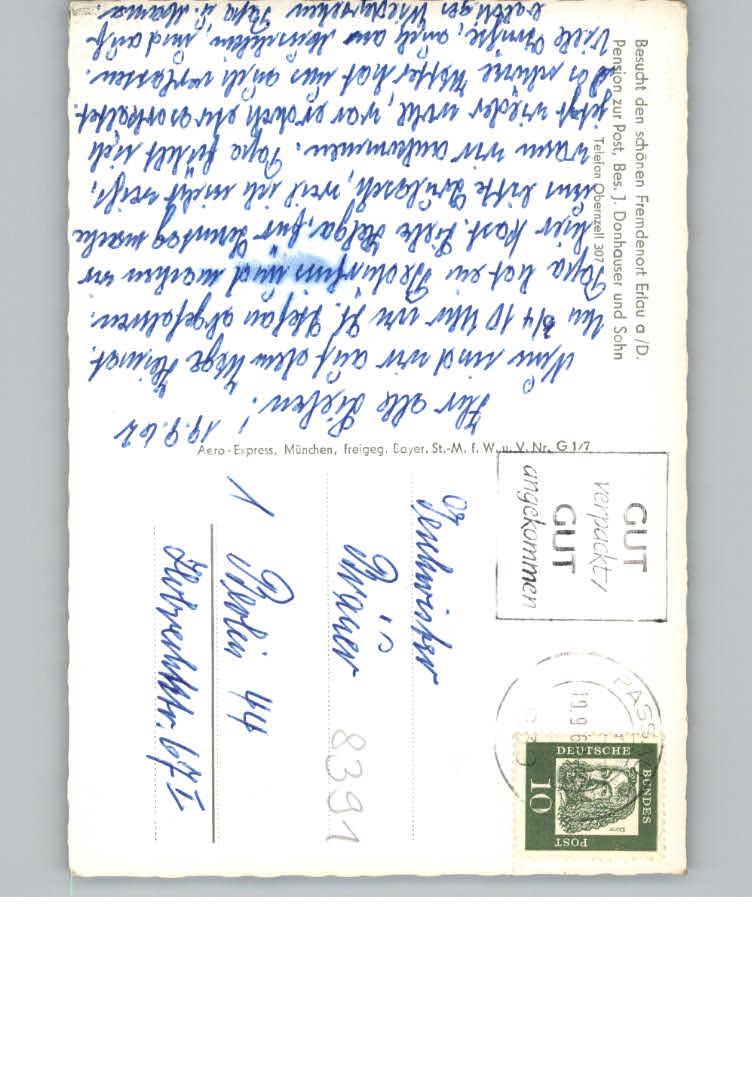 Besucht den schönen Fremdenort Erlau a/D.
Pension zur Post, Bes. J. Donhauser und Sohn
Telefon Obernzell 307
19.9.62
Ihr alle Lieben!
Nun sind wir auf dem Wege Heimat.
Um 3/4 10 Uhr von St. Stefan abgefahren.
Papa hat ein und machen wir
hier Rast. Liebe Helga, für Sonntag mache
uns bitte Gulasch, weil ich nicht weiß,
wann wir ankommen. Papa fühlt sich
jetzt wieder wohl, war er doch etwas erkältet.
Das schöne Wetter hat uns auch verlassen.
Viele Grüße, auch an und auf
baldiges Wiedersehen Papa u. Mama
Aero-Express, München, freigeg. Bayer. St.-M. f. W. u. V. Nr. G 1/7
GUT
verpackt/
GUT
angekommen
PASSAU
19.9.6
DEUTSCHE
BUNDES
POST
10
Dürer
Geschwister
Bräuer
8391
1 Berlin 44